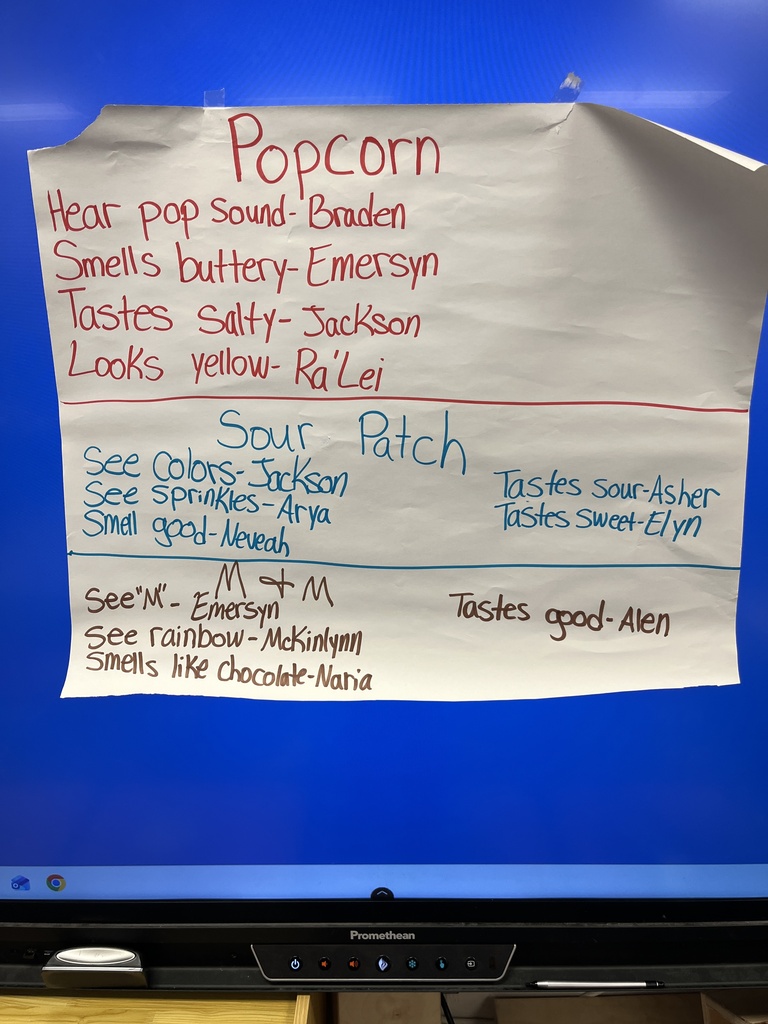 Popcorn
Hear pop sound- Braden
Smells buttery- Emersyn
Tastes salty- Jackson
Looks yellow- Ra'Lei
Sour Patch
See colors- Jackson
See sprinkles- Arya
Smell good- Neveah
Tastes sour- Asher
Tastes sweet- Elyn
M & M
See "M"- Emersyn
See rainbow- McKinlynn
Smells like chocolate- Naria
Tastes good- Alen
Promethean